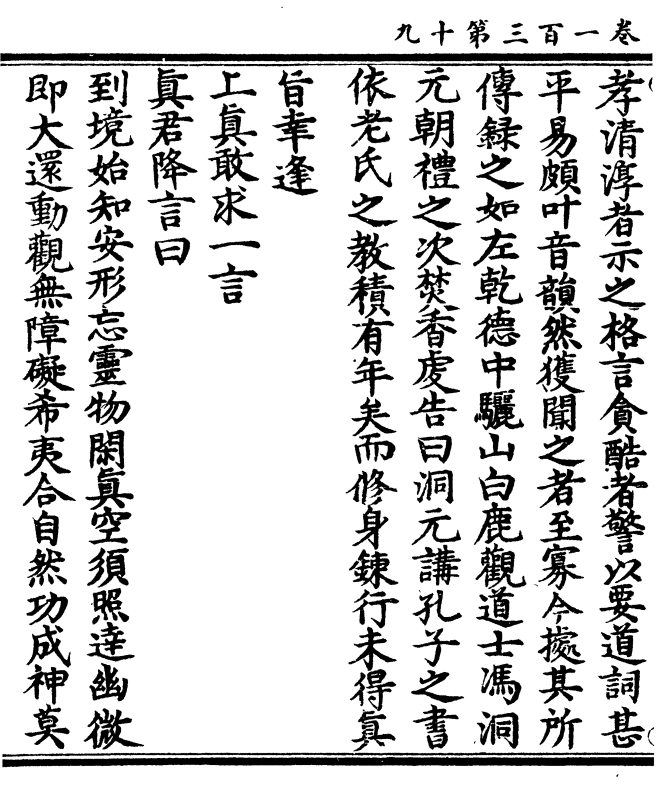 卷一百三第十九
孝清淳者示之格言貪酷者警以要道詞甚
平易頗叶音韻然獲聞之者至寡今㩀其所
傳録之如左乾德中驪山白鹿觀道士馮洞
元朝禮之次焚香虔告曰洞元講孔子之書
依老氏之教積有年矣而修身鍊行未得真
旨幸逢
上真敢求一言
真君降言曰
到境始知安形忘靈物閑真空須照達幽微
即大還動觀無障礙希夷合自然功成神莫